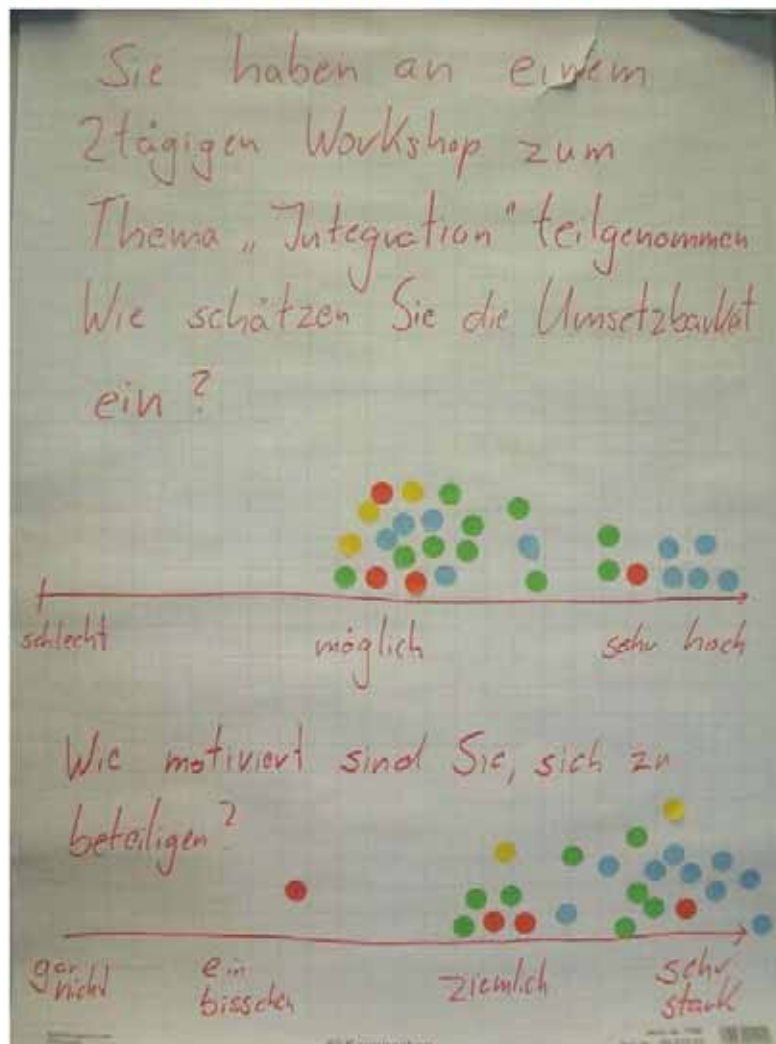 Sie haben an einem
2tägigen Workshop zum
Thema „Integration" teilgenommen
Wie schätzen Sie die Umsetzbarkeit
ein?
schlecht möglich sehr hoch
Wie motiviert sind Sie, sich zu
beteiligen?
gar nicht ein bisschen ziemlich sehr stark